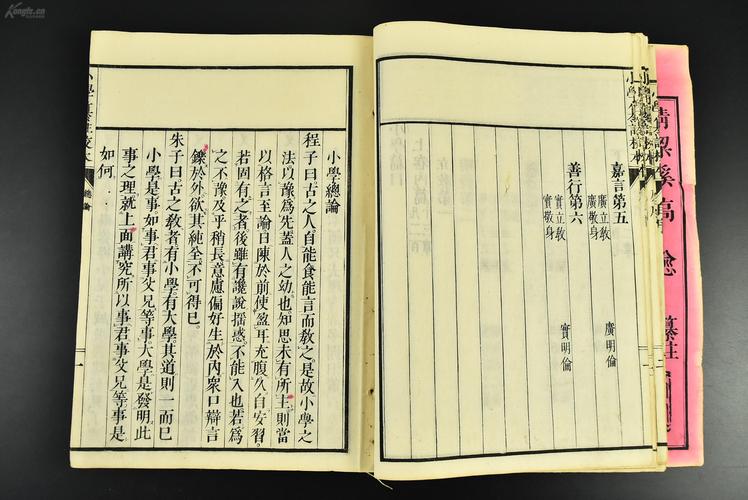 溪高 纂註
小學纂註校本
嘉言第五
廣立敎 廣明倫
廣敬身
善行第六
實立敎 實明倫
實敬身
小學總論
程子曰古之人自能食能言而敎之是故小學之
法以豫爲先蓋人之幼也知思未有所主則當
以格言至論日陳於前使盈耳充腹久自安習
若固有之者後雖有讒說搖惑不能入也若爲
之不豫及乎稍長意慮偏好生於內衆口辯言
鑠於外欲其純全不可得已
朱子曰古之敎者有小學有大學其道則一而已
小學是事如事君事父兄等事大學是發明此
事之理就上面講究所以事君事父兄等事是
如何
小學纂註校本 總論 一
Kongfz.cn